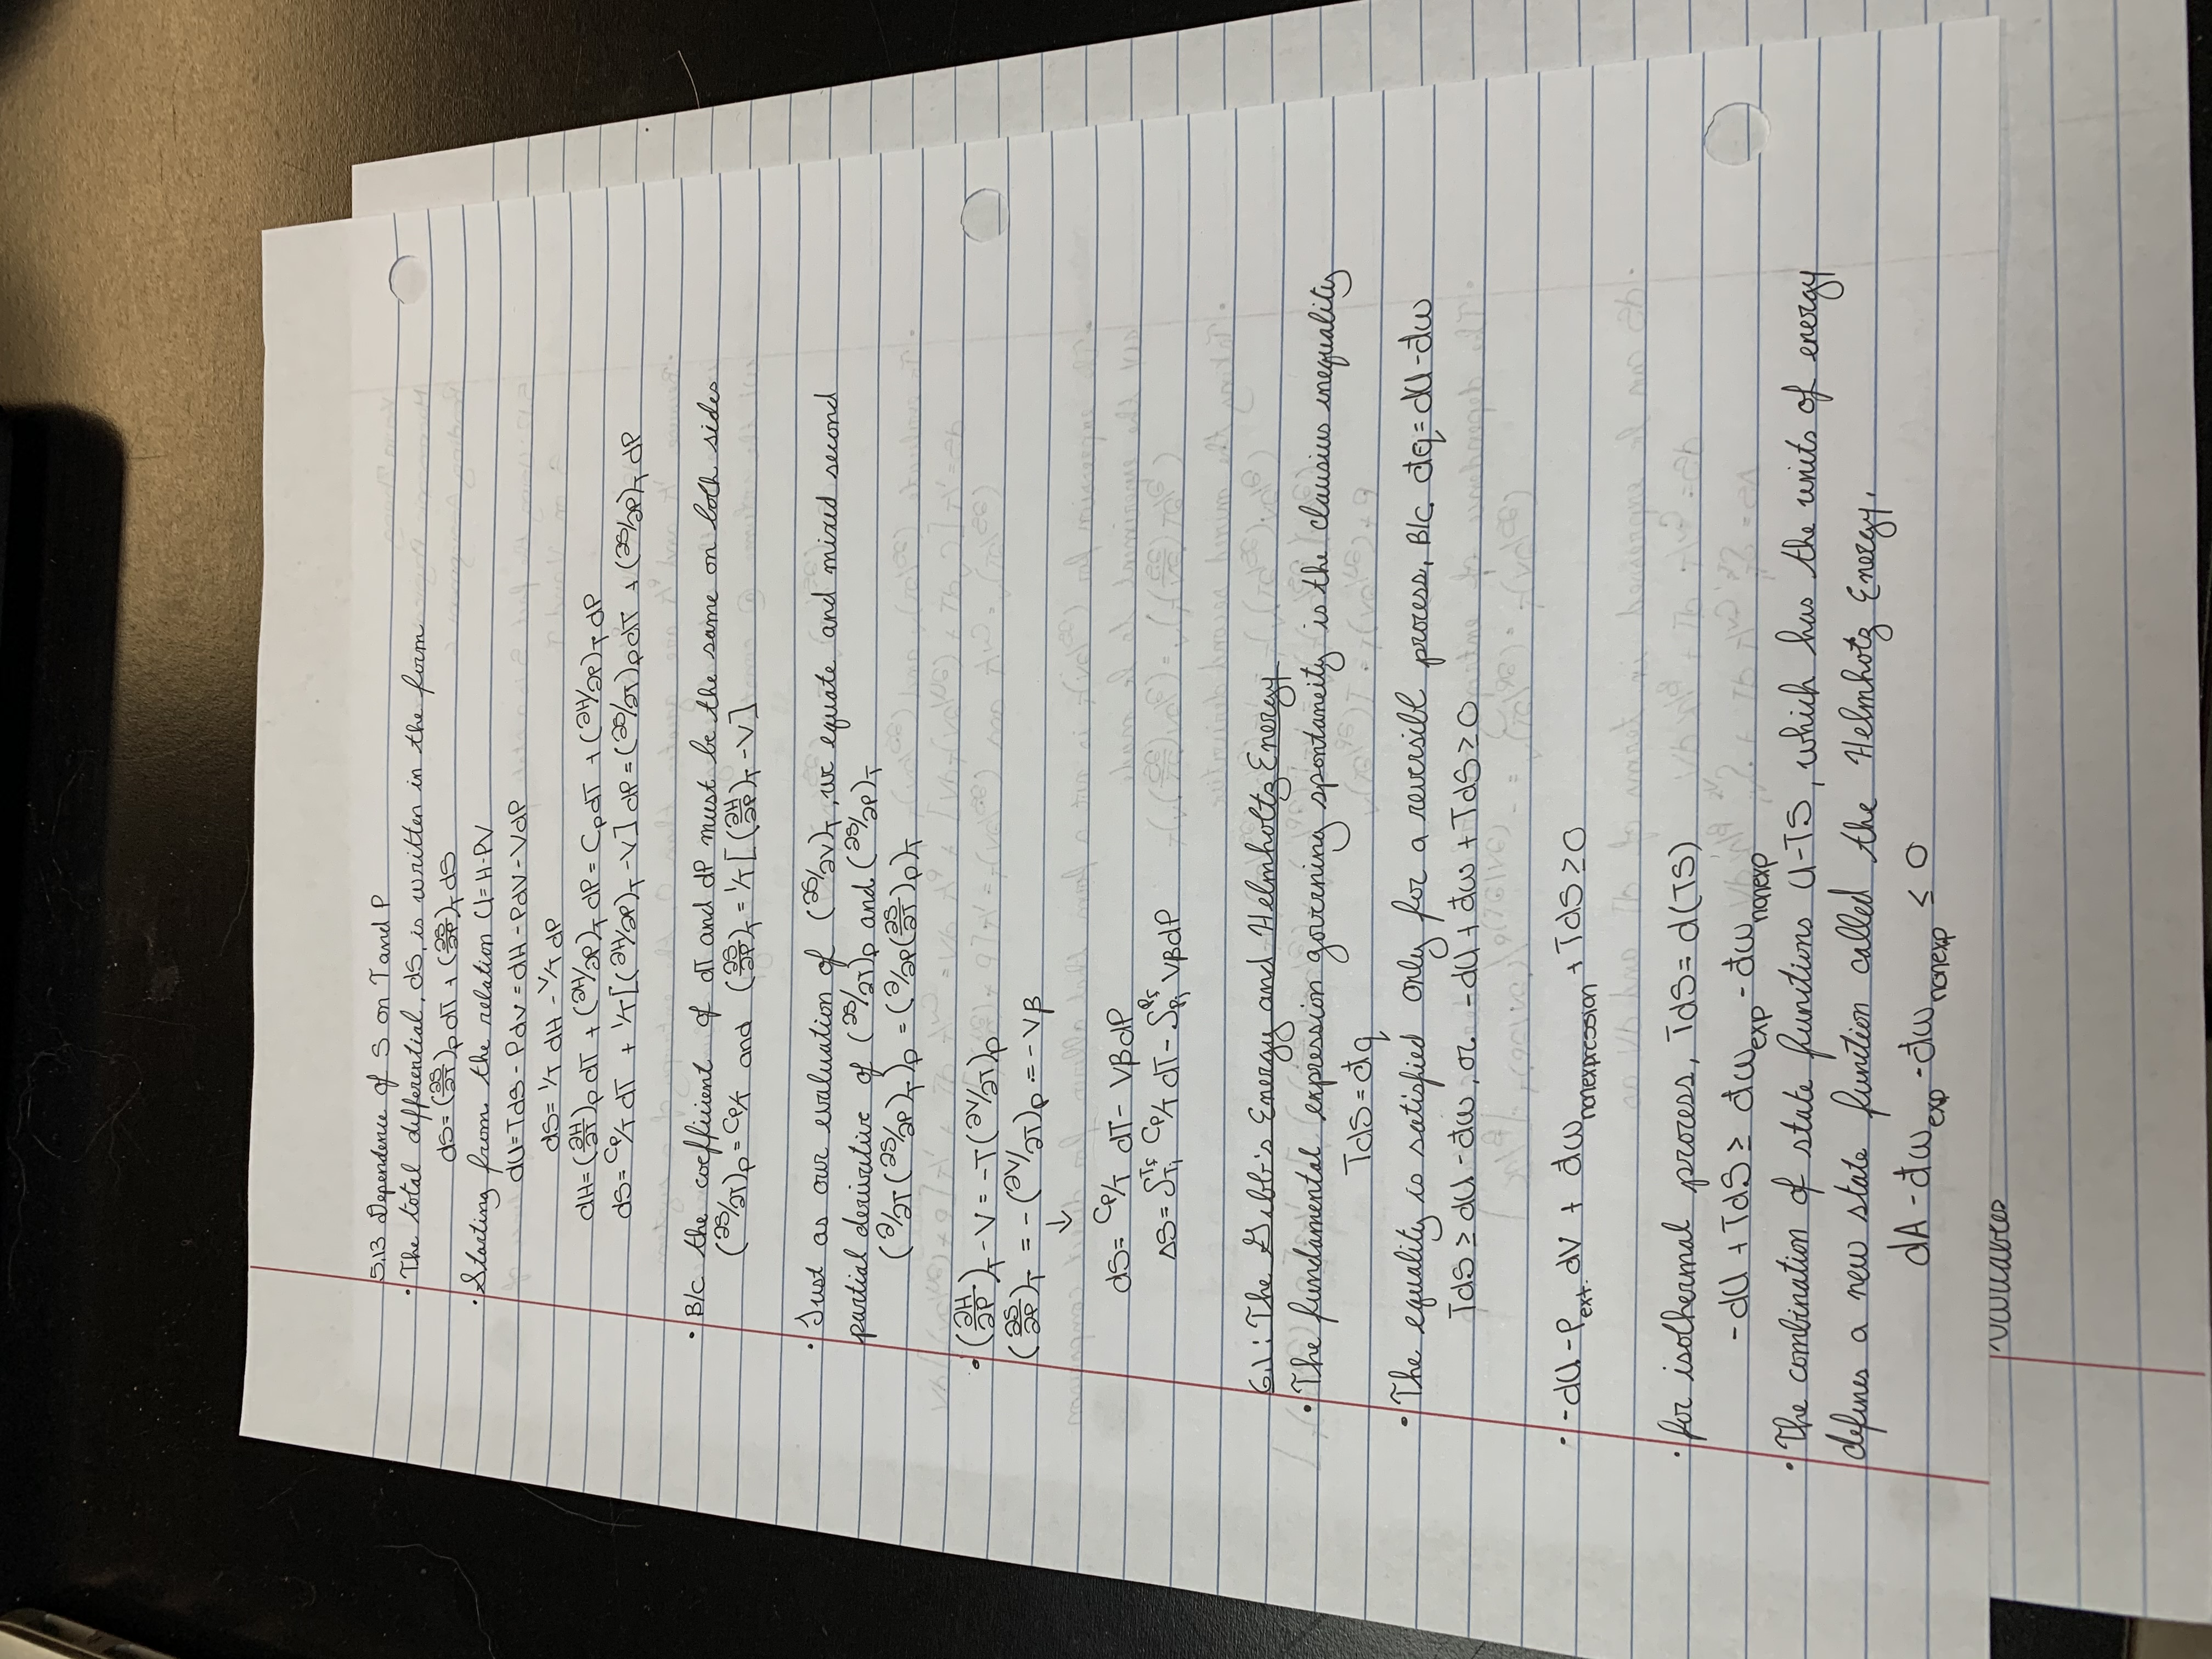 5.13 Dependence of S on T and P
• The total differential, dS, is written in the form
dS = (∂S/∂T)_P dT + (∂S/∂P)_T dS
• Starting from the relation U = H-PV
dU = TdS - PdV = dH - PdV - VdP
dS = 1/T dH - V/T dP
dH = (∂H/∂T)_P dT + (∂H/∂P)_T dP = C_P dT + (∂H/∂P)_T dP
dS = C_P/T dT + 1/T[(∂H/∂P)_T - V] dP = (∂S/∂T)_P dT + (∂S/∂P)_T dP
• B/C the coefficient of dT and dP must be the same on both sides
(∂S/∂T)_P = C_P/T and (∂S/∂P)_T = 1/T[(∂H/∂P)_T - V]
• Just as our evaluation of (∂S/∂V)_T, we equate and mixed second
partial derivative of (∂S/∂T)_P and (∂S/∂P)_T
(∂/∂T(∂S/∂P)_T)_P = (∂/∂P(∂S/∂T)_P)_T
• (∂H/∂P)_T - V = -T(∂V/∂T)_P
(∂S/∂P)_T = -(∂V/∂T)_P = -Vβ
↓
dS = C_P/T dT - VβdP
ΔS = ∫_Ti^Tf C_P/T dT - ∫_Pi^Pf VβdP
6.1: The Gibb's Energy and Helmholtz Energy
• The fundamental expression governing spontaneity is the clausius inequality
TdS = đq
• The equality is satisfied only for a reversibl process, B/C đq = dU - đw
TdS ≥ dU - đw, or -dU + đw + TdS ≥ 0
• -dU - P_ext. dV + đw_nonexpression + TdS ≥ 0
• for isothermal process, TdS = d(TS)
-dU + TdS ≥ đw_exp - đw_nonexp
• The combination of state functions U-TS, which has the units of energy
defines a new state function called the Helmhotz Energy.
dA - đw_exp - đw_nonexp ≤ 0
Variables